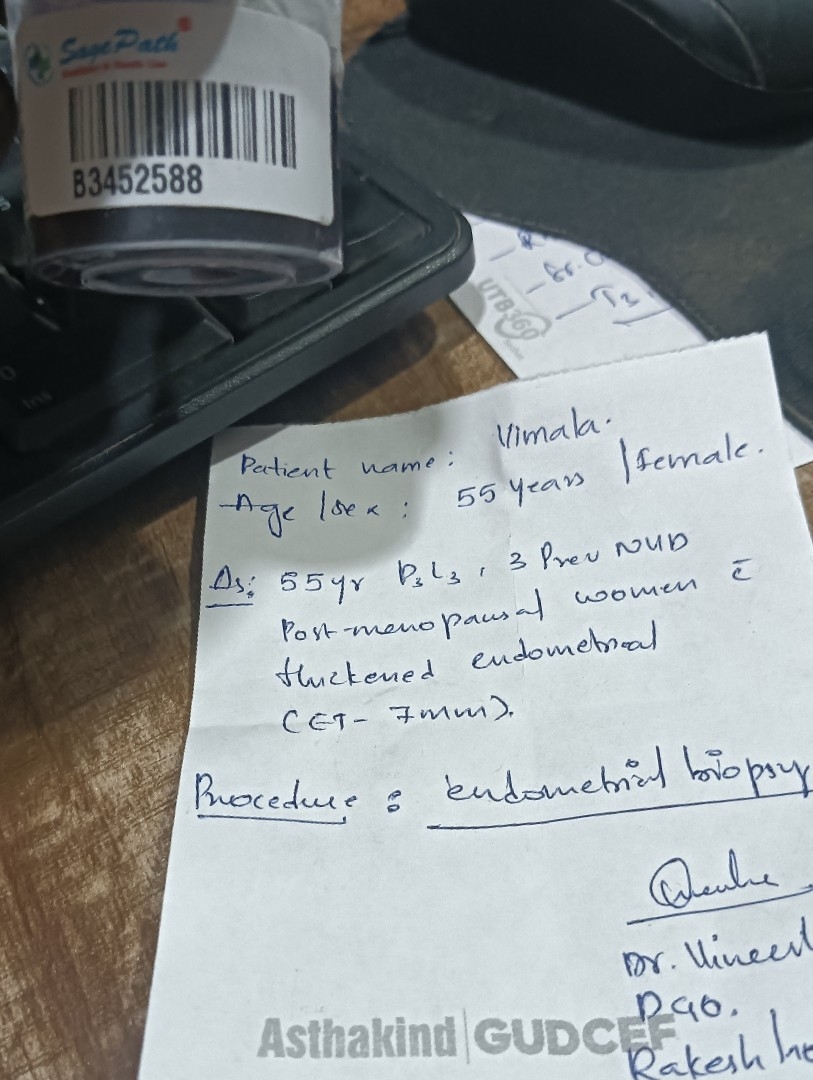 SagePath
B3452588
UTB360
Patient name: Vimala.
Age/Sex: 55 years /female.
Ds: 55yr P3L3, 3 Prev NVD
Post-menopausal women c̄
thickened endometrial
(ET- 7mm).
Procedure: endometrial biopsy
Dr. Vineet
DGO.
Rakesh
Asthakind | GUDCEF